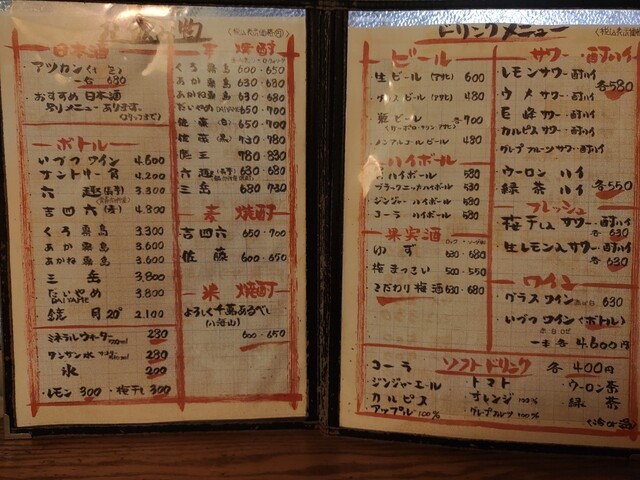 日本酒
アツカン
一合 680
おすすめ 日本酒
別メニューあります。
ボトル
いづつ ワイン 4.600
サントリー角 4.200
六 趣 3.800
吉四六 4.800
くろ霧島 3.300
あか霧島 3.600
あかね霧島 3.600
三 岳 3.800
だいやめ 3.800
DAIYAME
月 20° 2.100
ミネラルウォーター 230
タンサン水 230
氷 200
・レモン 300 ・梅干し 300
芋 焼酎
くろ霧島 600・650
あか霧島 630・680
あかね霧島 630・680
だいやめ DAIYAME 650・700
佐藤 650・700
佐藤 730・780
魔王 780・830
六趣 630・680
三岳 680 730
麦 焼酎
吉四六 650・700
佐藤 600・650
米 焼酎
よろしく千萬あるべし
(八海山)
600・650
ドリンクメニュー
ビール
生ビール (アサヒ) 600
グラスビール (アサヒ) 480
瓶ビール 各700
ノンアルコールビール 480
ハイボール
ハイボール 580
ブラックニッカハイボール 530
ジンジャーハイボール 580
コーラ ハイボール 580
果実酒
ゆず 630・680
梅まっこい 500・550
こだわり梅酒 630・680
サワー・酎ハイ
レモンサワー・酎ハイ
各580
ウメサワー・酎ハイ
巨峰サワー・酎ハイ
カルピスサワー・酎ハイ
グレープフルーツサワー・酎ハイ
ウーロン ハイ
緑茶 ハイ 各550
フレッシュ
梅干し入 サワー・酎ハイ
各 630
生レモン入サワー・酎ハイ
各 630
ワイン
グラスワイン 各630
いづつワイン (ボトル)
一本 各 4.600円
ソフトドリンク 各 400円
コーラ
ジンジャーエール
カルピス
アップル 100%
トマト
オレンジ 100%
グレープフルーツ 100%
ウーロン茶
緑 茶
(冷or温)